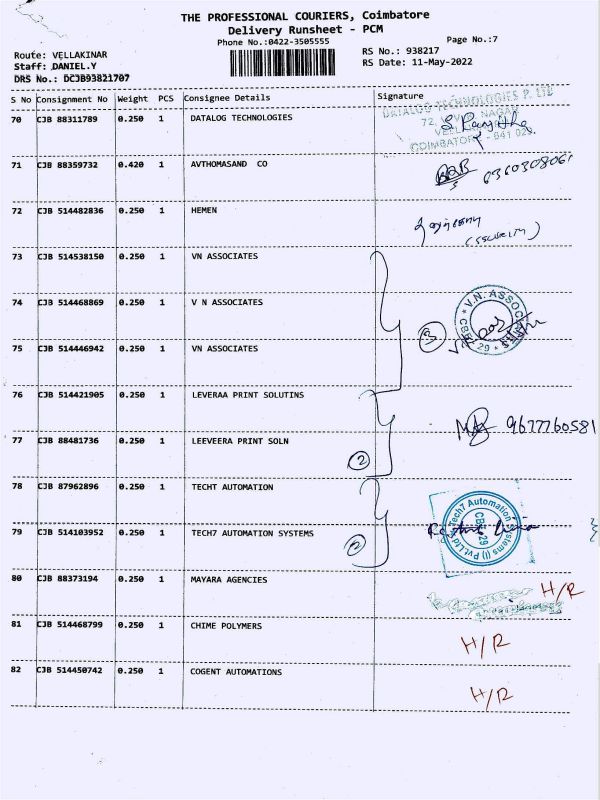 THE PROFESSIONAL COURIERS, Coimbatore
Delivery Runsheet - PCM
Phone No.:0422-3505555
Page No.:7
Route: VELLAKINAR
RS No.: 938217
Staff: DANIEL.Y
RS Date: 11-May-2022
DRS No.: DCJB93821707
S No Consignment No Weight PCS Consignee Details Signature
70 CJB 88311789 0.250 1 DATALOG TECHNOLOGIES
DATALOG TECHNOLOGIES P. LTD
72, NAGAR
COIMBATORE - 641 029
71 CJB 88359732 0.420 1 AVTHOMASAND CO
72 CJB 514482836 0.250 1 HEMEN
(SECURITY)
73 CJB 514538150 0.250 1 VN ASSOCIATES
74 CJB 514468869 0.250 1 V N ASSOCIATES
V.N. ASSOCIATES
CBE
29
3
75 CJB 514446942 0.250 1 VN ASSOCIATES
76 CJB 514421905 0.250 1 LEVERAA PRINT SOLUTINS
9677760581
77 CJB 88481736 0.250 1 LEEVEERA PRINT SOLN
2
78 CJB 87962896 0.250 1 TECHT AUTOMATION
Tech7 Automation Systems (I) Pvt Ltd
79 CJB 514103952 0.250 1 TECH7 AUTOMATION SYSTEMS
2
80 CJB 88373194 0.250 1 MAYARA AGENCIES H/R
81 CJB 514468799 0.250 1 CHIME POLYMERS H/R
82 CJB 514450742 0.250 1 COGENT AUTOMATIONS H/R